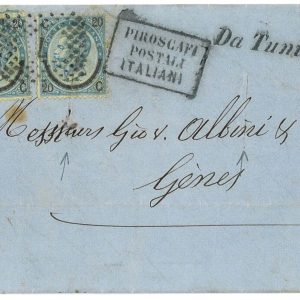 PIROSCAFI
POSTALI
ITALIANI
Da Tuni
20 C 20 C
Messieurs Gio v. Albini &
Gênes